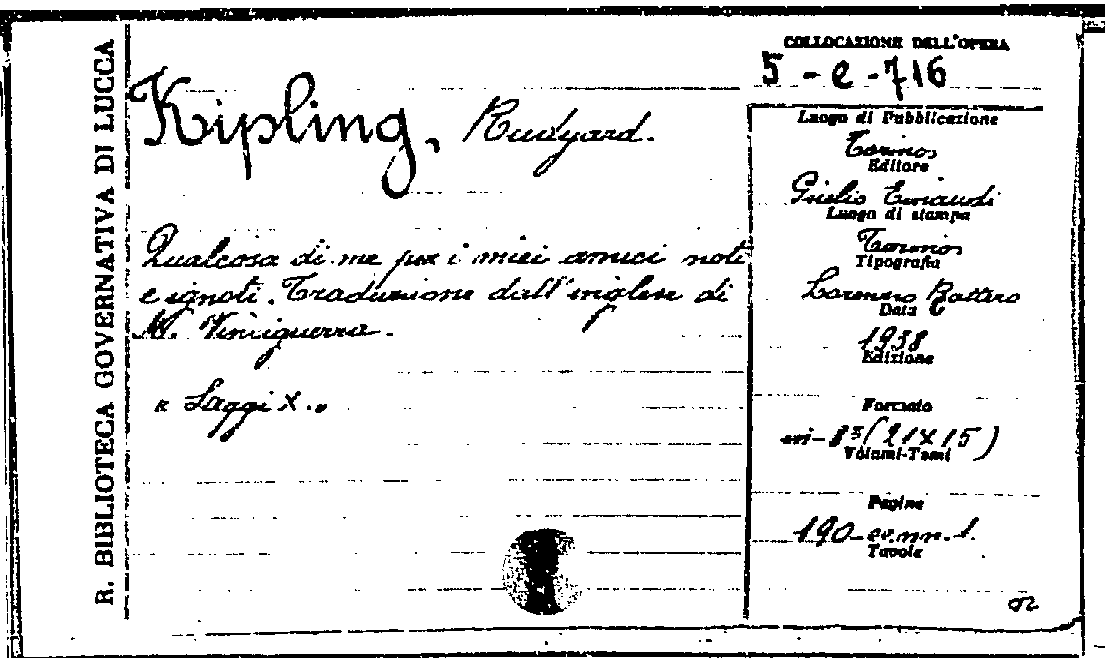 R. BIBLIOTECA GOVERNATIVA DI LUCCA
Kipling, Rudyard.
Qualcosa di me per i miei amici noti
e ignoti. Traduzione dall'inglese di
M. Vinciguerra.
« Saggi X. »
COLLOCAZIONE DELL'OPERA
5 - e - 716
Luogo di Pubblicazione
Torino,
Editore
Giulio Einaudi
Luogo di stampa
Torino,
Tipografia
Lorenzo Rattero
Data
1938
Edizione
Formato
8° (21x15)
Volumi-Tomi
Pagine
190 - cc. nn. 1.
Tavole